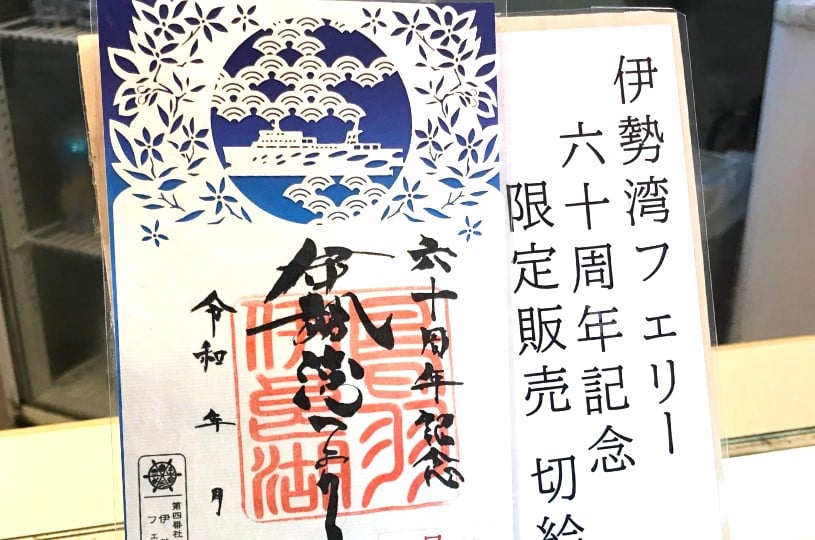 伊勢湾フェリー
六十周年記念
限定販売 切絵
六十周年記念
伊勢湾フェリー
鳥羽
伊良湖
令和 年 月
第四番社
伊勢
フェ